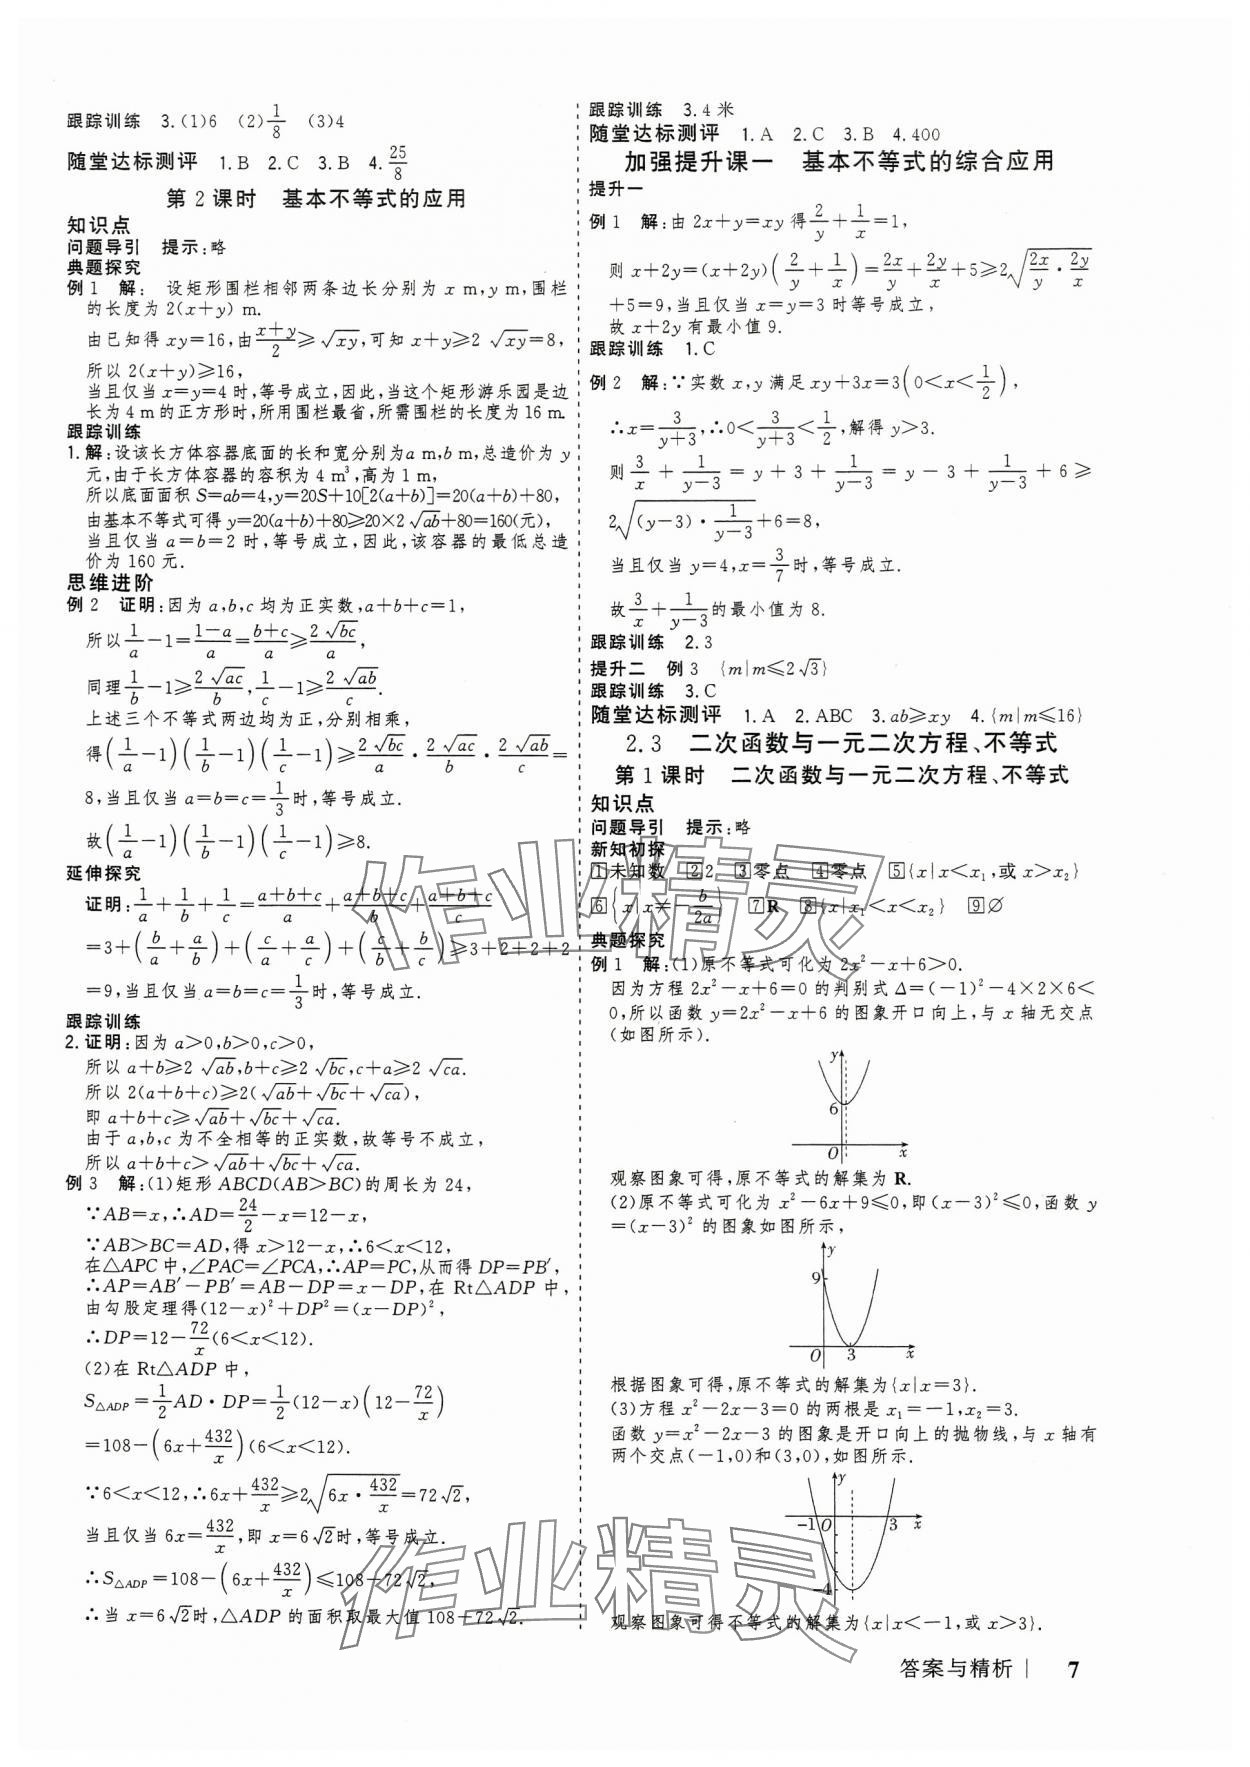 跟踪训练 3.(1)6 (2)1/8 (3)4
随堂达标测评 1.B 2.C 3.B 4.25/8
第2课时 基本不等式的应用
知识点
问题导引 提示:略
典题探究
例1 解: 设矩形围栏相邻两条边长分别为 x m,y m,围栏
的长度为 2(x+y) m.
由已知得 xy=16,由(x+y)/2≥√(xy),可知 x+y≥2√(xy)=8,
所以 2(x+y)≥16,
当且仅当 x=y=4时,等号成立,因此,当这个矩形游乐园是边
长为4 m的正方形时,所用围栏最省,所需围栏的长度为16 m.
跟踪训练
1.解:设该长方体容器底面的长和宽分别为a m,b m,总造价为 y
元,由于长方体容器的容积为 4 m³,高为 1 m,
所以底面面积 S=ab=4,y=20S+10[2(a+b)]=20(a+b)+80,
由基本不等式可得 y=20(a+b)+80≥20×2√(ab)+80=160(元),
当且仅当 a=b=2 时,等号成立,因此,该容器的最低总造
价为 160 元.
思维进阶
例2 证明:因为 a,b,c 均为正实数,a+b+c=1,
所以1/a-1=(1-a)/a=(b+c)/a≥2√(bc)/a,
同理1/b-1≥2√(ac)/b,1/c-1≥2√(ab)/c.
上述三个不等式两边均为正,分别相乘,
得(1/a-1)(1/b-1)(1/c-1)≥2√(bc)/a·2√(ac)/b·2√(ab)/c=
8,当且仅当 a=b=c=1/3时,等号成立.
故(1/a-1)(1/b-1)(1/c-1)≥8.
延伸探究
证明:1/a+1/b+1/c=(a+b+c)/a+(a+b+c)/b+(a+b+c)/c
=3+(b/a+a/b)+(c/a+a/c)+(c/b+b/c)≥3+2+2+2
=9,当且仅当 a=b=c=1/3时,等号成立.
跟踪训练
2.证明:因为 a>0,b>0,c>0,
所以 a+b≥2√(ab),b+c≥2√(bc),c+a≥2√(ca).
所以 2(a+b+c)≥2(√(ab)+√(bc)+√(ca)),
即 a+b+c≥√(ab)+√(bc)+√(ca).
由于 a,b,c 为不全相等的正实数,故等号不成立,
所以 a+b+c>√(ab)+√(bc)+√(ca).
例3 解:(1)矩形 ABCD(AB>BC)的周长为 24,
∵AB=x,∴AD=24/2-x=12-x,
∵AB>BC=AD,得 x>12-x,∴6<x<12,
在△APC 中,∠PAC=∠PCA,∴AP=PC,从而得 DP=PB′,
∴AP=AB′-PB′=AB-DP=x-DP,在 Rt△ADP 中,
由勾股定理得(12-x)²+DP²=(x-DP)²,
∴DP=12-72/x(6<x<12).
(2)在 Rt△ADP 中,
S△ADP=1/2AD·DP=1/2(12-x)(12-72/x)
=108-(6x+432/x)(6<x<12).
∵6<x<12,∴6x+432/x≥2√(6x·432/x)=72√2,
当且仅当 6x=432/x,即 x=6√2时,等号成立.
∴S△ADP=108-(6x+432/x)≤108-72√2,
∴当 x=6√2时,△ADP 的面积取最大值 108-72√2.
跟踪训练 3.4 米
随堂达标测评 1.A 2.C 3.B 4.400
加强提升课一 基本不等式的综合应用
提升一
例1 解:由 2x+y=xy 得2/y+1/x=1,
则 x+2y=(x+2y)(2/y+1/x)=2x/y+2y/x+5≥2√(2x/y·2y/x)
+5=9,当且仅当 x=y=3 时等号成立,
故 x+2y 有最小值 9.
跟踪训练 1.C
例2 解:∵实数 x,y 满足 xy+3x=3(0<x<1/2),
∴x=3/(y+3),∴0<3/(y+3)<1/2,解得 y>3.
则 3/x+1/(y-3)=y+3+1/(y-3)=y-3+1/(y-3)+6≥
2√((y-3)·1/(y-3))+6=8,
当且仅当 y=4,x=3/7时,等号成立.
故3/x+1/(y-3)的最小值为 8.
跟踪训练 2.3
提升二 例3 {m|m≤2√3}
跟踪训练 3.C
随堂达标测评 1.A 2.ABC 3.ab≥xy 4.{m|m≤16}
2.3 二次函数与一元二次方程、不等式
第1课时 二次函数与一元二次方程、不等式
知识点
问题导引 提示:略
新知初探
1未知数 22 3零点 4零点 5{x|x<x₁,或 x>x₂}
6{x|x≠-b/2a} 7R 8{x|x₁<x<x₂} 9∅
典题探究
例1 解:(1)原不等式可化为 2x²-x+6>0.
因为方程 2x²-x+6=0 的判别式 Δ=(-1)²-4×2×6<
0,所以函数 y=2x²-x+6 的图象开口向上,与 x 轴无交点
(如图所示).
y
6
O x
观察图象可得,原不等式的解集为 R.
(2)原不等式可化为 x²-6x+9≤0,即(x-3)²≤0,函数 y
=(x-3)² 的图象如图所示,
y
9
O 3 x
根据图象可得,原不等式的解集为{x|x=3}.
(3)方程 x²-2x-3=0 的两根是 x₁=-1,x₂=3.
函数 y=x²-2x-3 的图象是开口向上的抛物线,与 x 轴有
两个交点(-1,0)和(3,0),如图所示.
y
-1 O 3 x
-4
观察图象可得不等式的解集为{x|x<-1,或 x>3}.
答案与精析 | 7
作业精灵
作业精灵